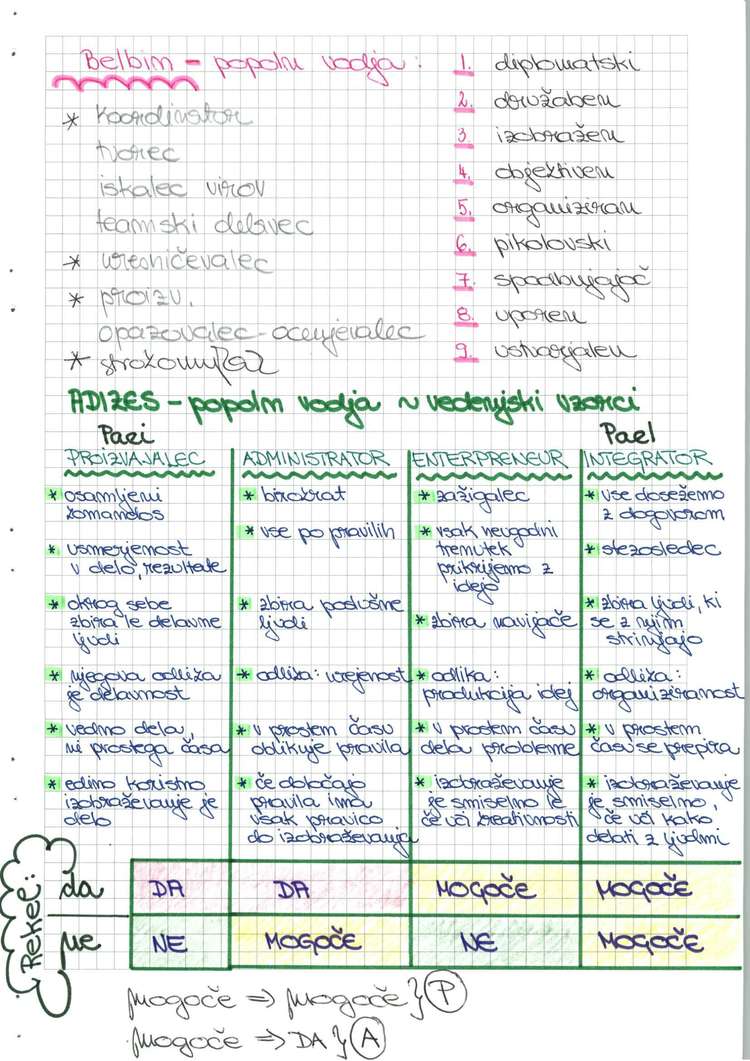 Belbin - popoln vodja:
* koordinator
tvorec
iskalec virov
teamski delavec
* uresničevalec
* proizv.
opazovalec-ocenjevalec
* strokovnjak
1. diplomatski
2. družaben
3. izobražen
4. objektiven
5. organiziran
6. pikolovski
7. spodbujajoč
8. uporen
9. ustvarjalen
ADIZES - popoln vodja ~ vedenjski vzorci
Paei
PROIZVAJALEC
* osamljeni
komandos
* usmerjenost
v delo, rezultate
* okrog sebe
zbira le delavne
ljudi
* njegova odlika
je delavnost
* vedno dela,
ni prostega časa
* edino koristno
izobraževanje je
delo
ADMINISTRATOR
* birokrat
* vse po pravilih
* zbira poslušne
ljudi
* odlika: urejenost
* v prostem času
oblikuje pravila
* če določajo
pravila ima
vsak pravico
do izobraževanja
ENTERPRENEUR
* zažigalec
* vsak neugodni
trenutek
prikrijemo z
idejo
* zbira navijače
* odlika:
produkcija idej
* v prostem času
dela probleme
* izobraževanje
je smiselno le
če uči kreativnosti
PaeI
INTEGRATOR
* vse dosežemo
z dogovorom
* stezosledec
* zbira ljudi, ki
se z njim
strinjajo
* odlika:
organiziranost
* v prostem
času se prepira
* izobraževanje
je smiselno,
če uči kako
delati z ljudmi
Rekel:
da DA DA MOGOČE MOGOČE
ne NE MOGOČE NE MOGOČE
mogoče => mogoče } P
mogoče => DA } A